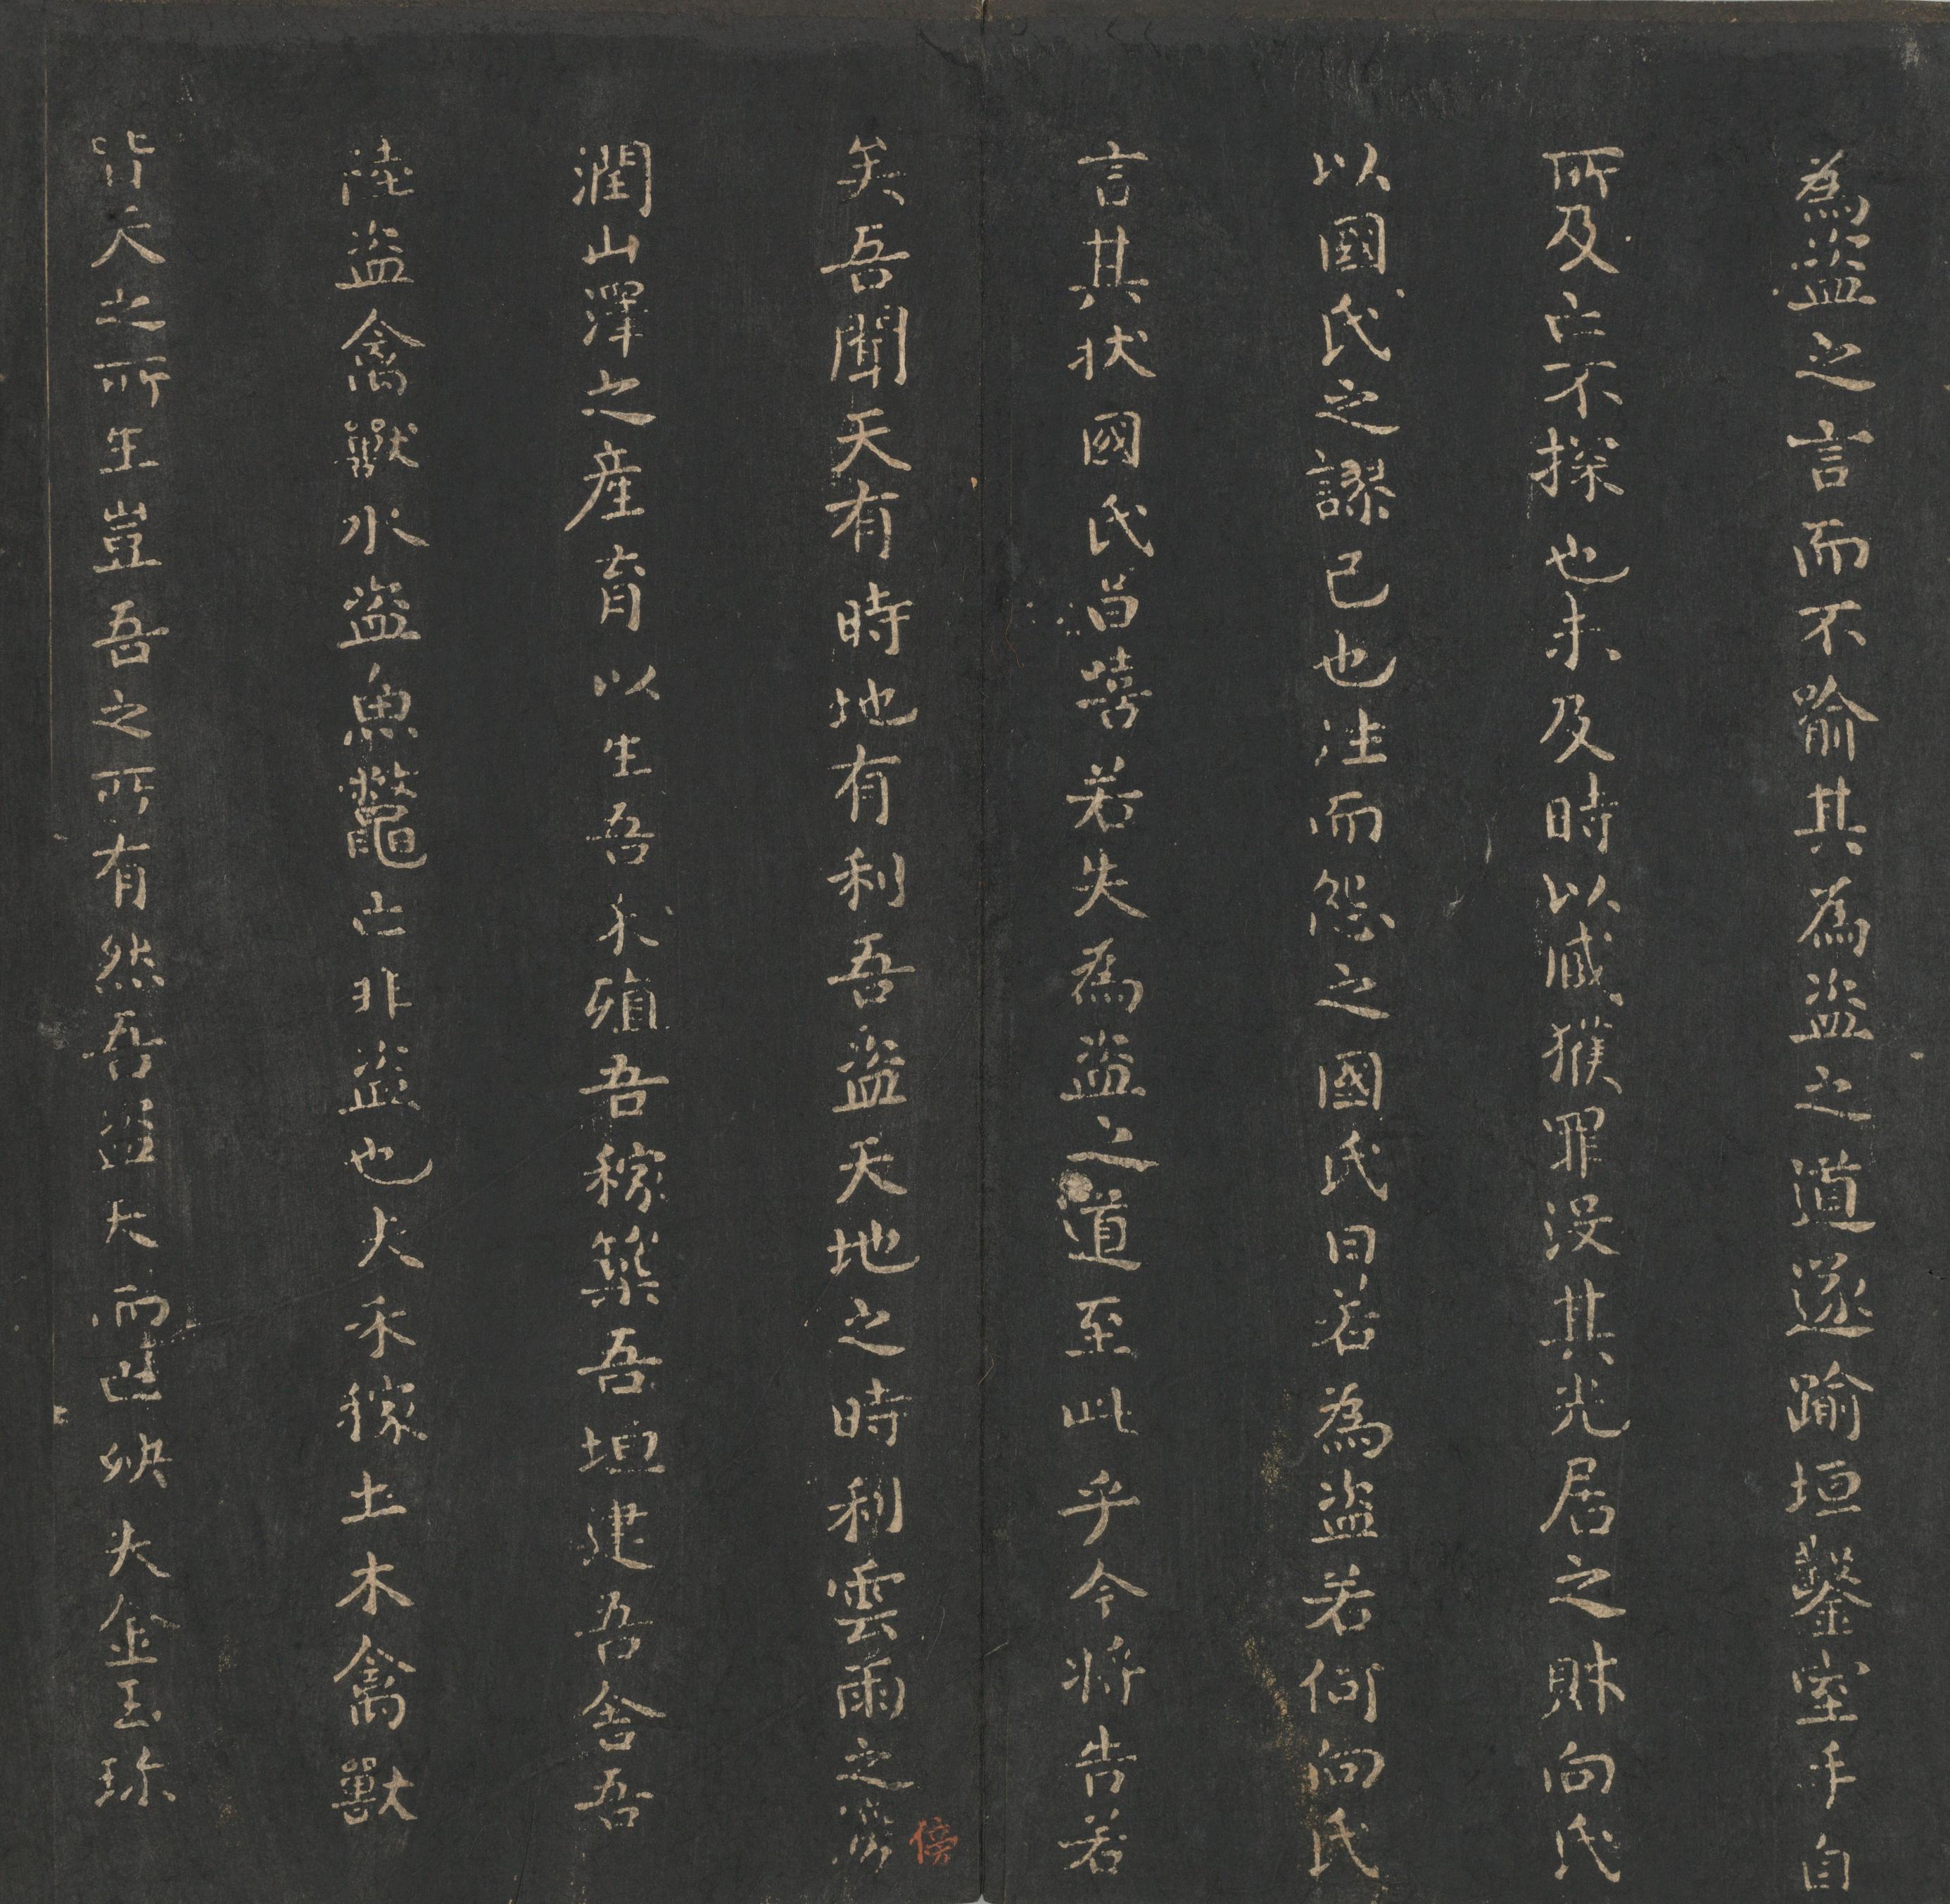 為盜之言而不喻其為盜之道遂踰垣鑿室手目
所及亡不探也未及時以臧獲罪没其先居之財向氏
以國氏之謬己也往而怨之國氏曰若為盜若何向氏
言其狀國氏曰嘻若失為盜之道至此乎今將告若
矣吾聞天有時地有利吾盜天地之時利雲雨之滂
潤山澤之產育以生吾禾殖吾稼築吾垣建吾舍吾
陸盜禽獸水盜魚鼈亡非盜也夫禾稼土木禽獸
皆天之所生豈吾之所有然吾盜天而亡殃夫金玉珍
滂